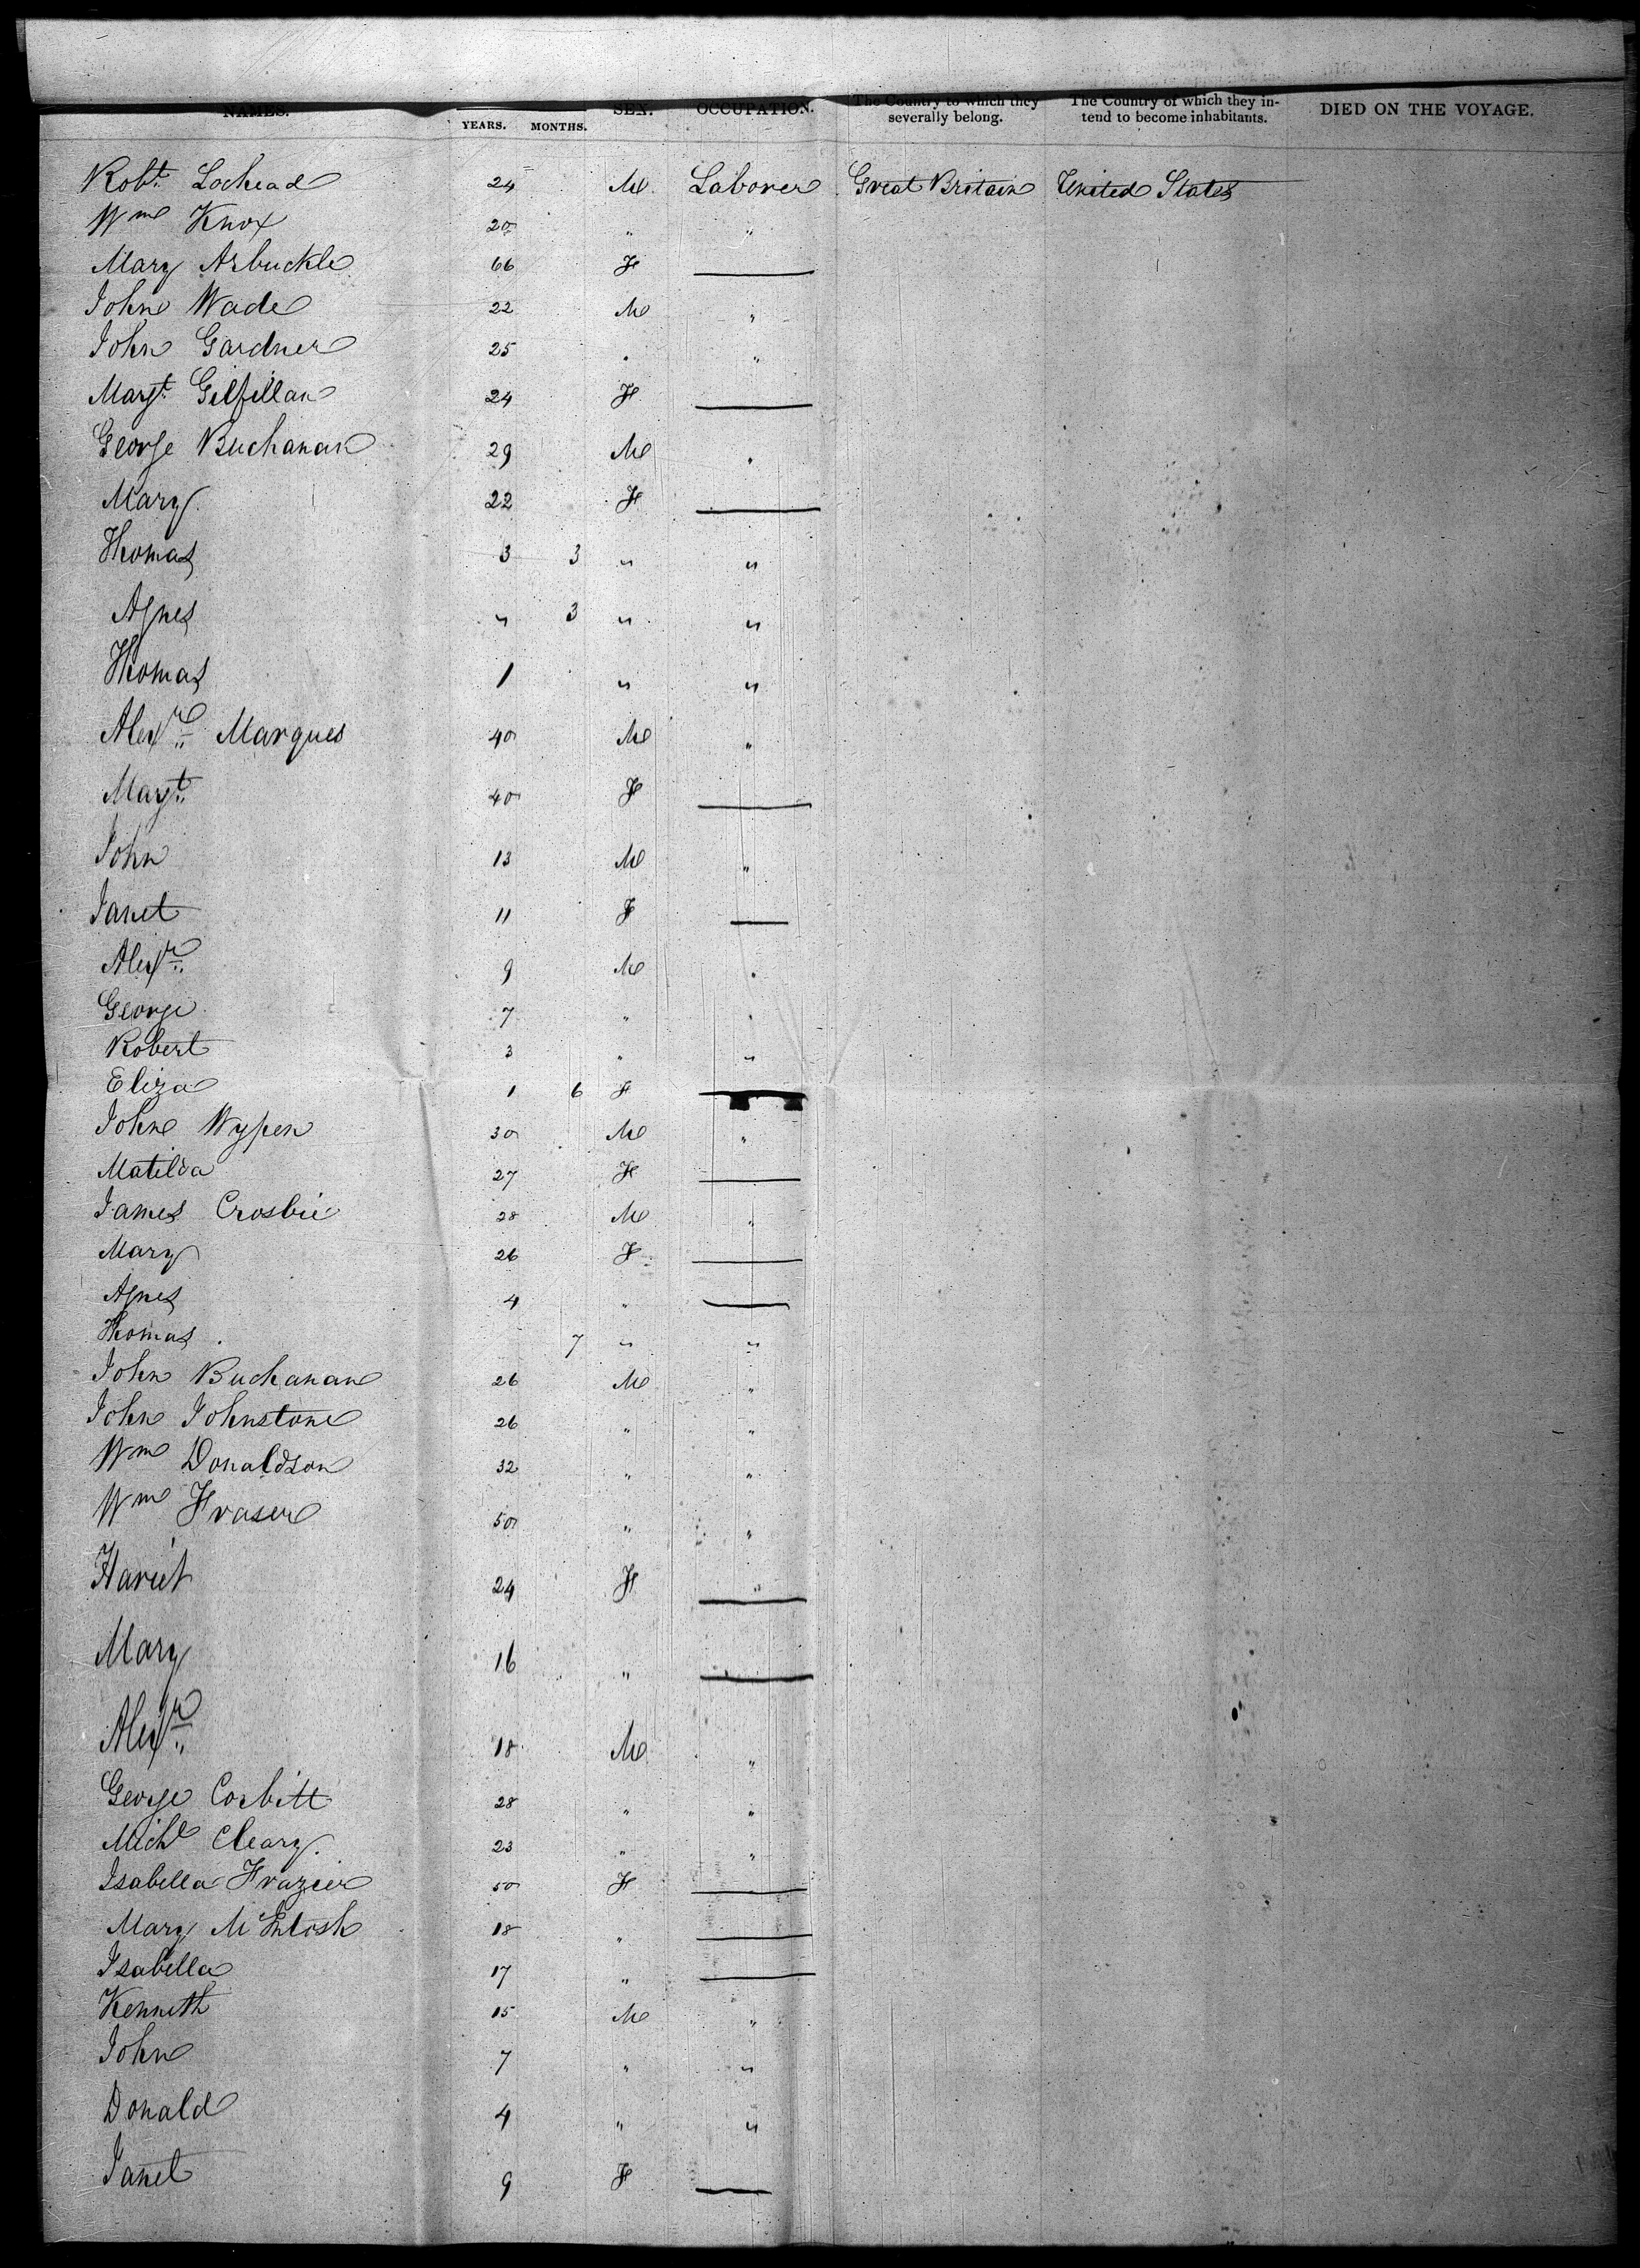 NAMES. YEARS. MONTHS. SEX. OCCUPATION. The Country to which they severally belong. The Country of which they intend to become inhabitants. DIED ON THE VOYAGE.
Robt. Lochead 24 M Laborer Great Britain United States
Wm Knox 20 " "
Mary Arbuckle 66 F —
John Wade 22 M "
John Gardner 25 " "
Margt. Gilfillan 24 F —
George Buchanan 29 M "
Mary 22 F —
Thomas 3 3 " "
Agnes " 3 " "
Thomas 1 " "
Alexr. Marques 40 M "
Margt. 40 F —
John 13 M "
Janet 11 F —
Alexr. 9 M "
George 7 " "
Robert 3 " "
Eliza 1 6 F —
John Wypen 30 M "
Matilda 27 F —
James Crosbie 28 M "
Mary 26 F —
Agnes 4 " —
Thomas 7 " "
John Buchanan 26 M "
John Johnstone 26 " "
Wm Donaldson 32 " "
Wm Fraser 50 " "
Hariet 24 F " —
Mary 16 " —
Alexr. 18 M "
George Corbitt 28 " "
Michl Cleary 23 " "
Isabella Frazier 50 F —
Mary McIntosh 18 " —
Isabella 17 " —
Kenneth 15 M "
John 7 " "
Donald 4 " "
Janet 9 F —